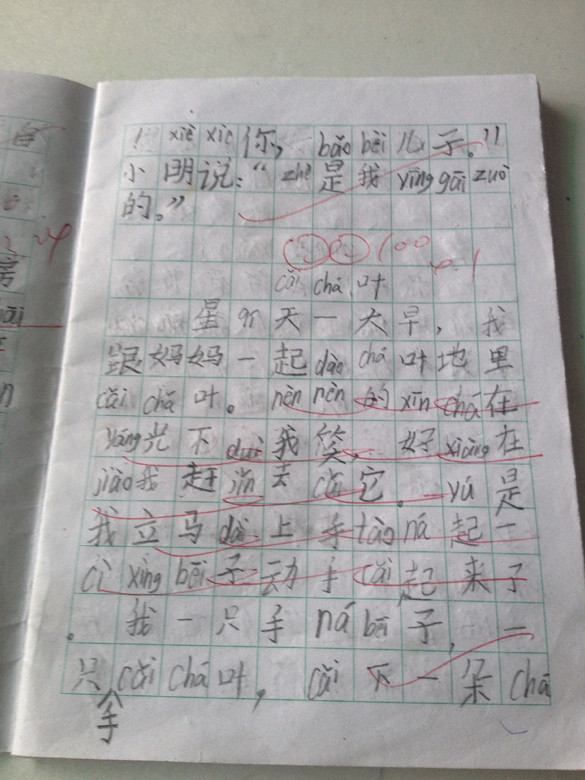 ！xiè xiè 你，bǎo bèi 儿子。”
小明说：“zhè 是我 yīng gāi zuò
的。”
100
cǎi chá 叶
星 qī 天一大早，我
跟妈妈一起 dào chá 叶地里
cǎi chá 叶。nèn nèn 的 xīn chá 在
yáng 光下 duì 我笑，好 xiàng 在
jiào 我赶 jǐn 去 cǎi 它。yú 是
我立马 dài 上手 tào ná 起一
cì xìng bēi 子动手 cǎi 起来子
。我一只手 ná bēi 子，一
只手 cǎi chá 叶，cǎi 下一朵 chá